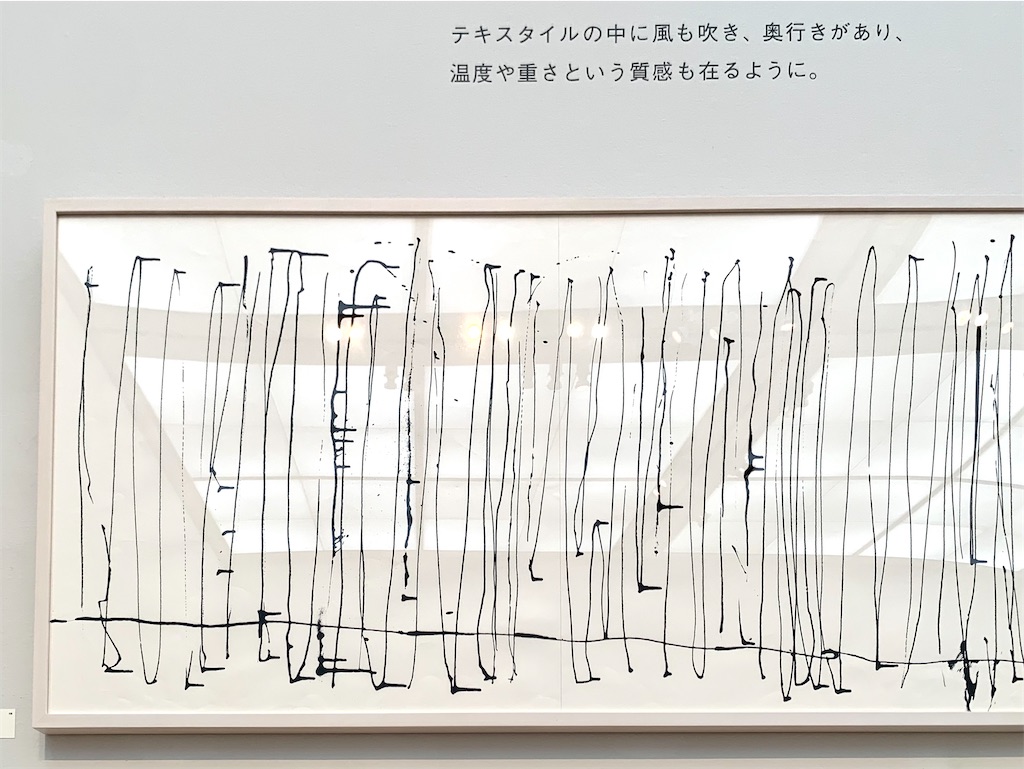 テキスタイルの中に風も吹き、奥行きがあり、
温度や重さという質感も在るように。